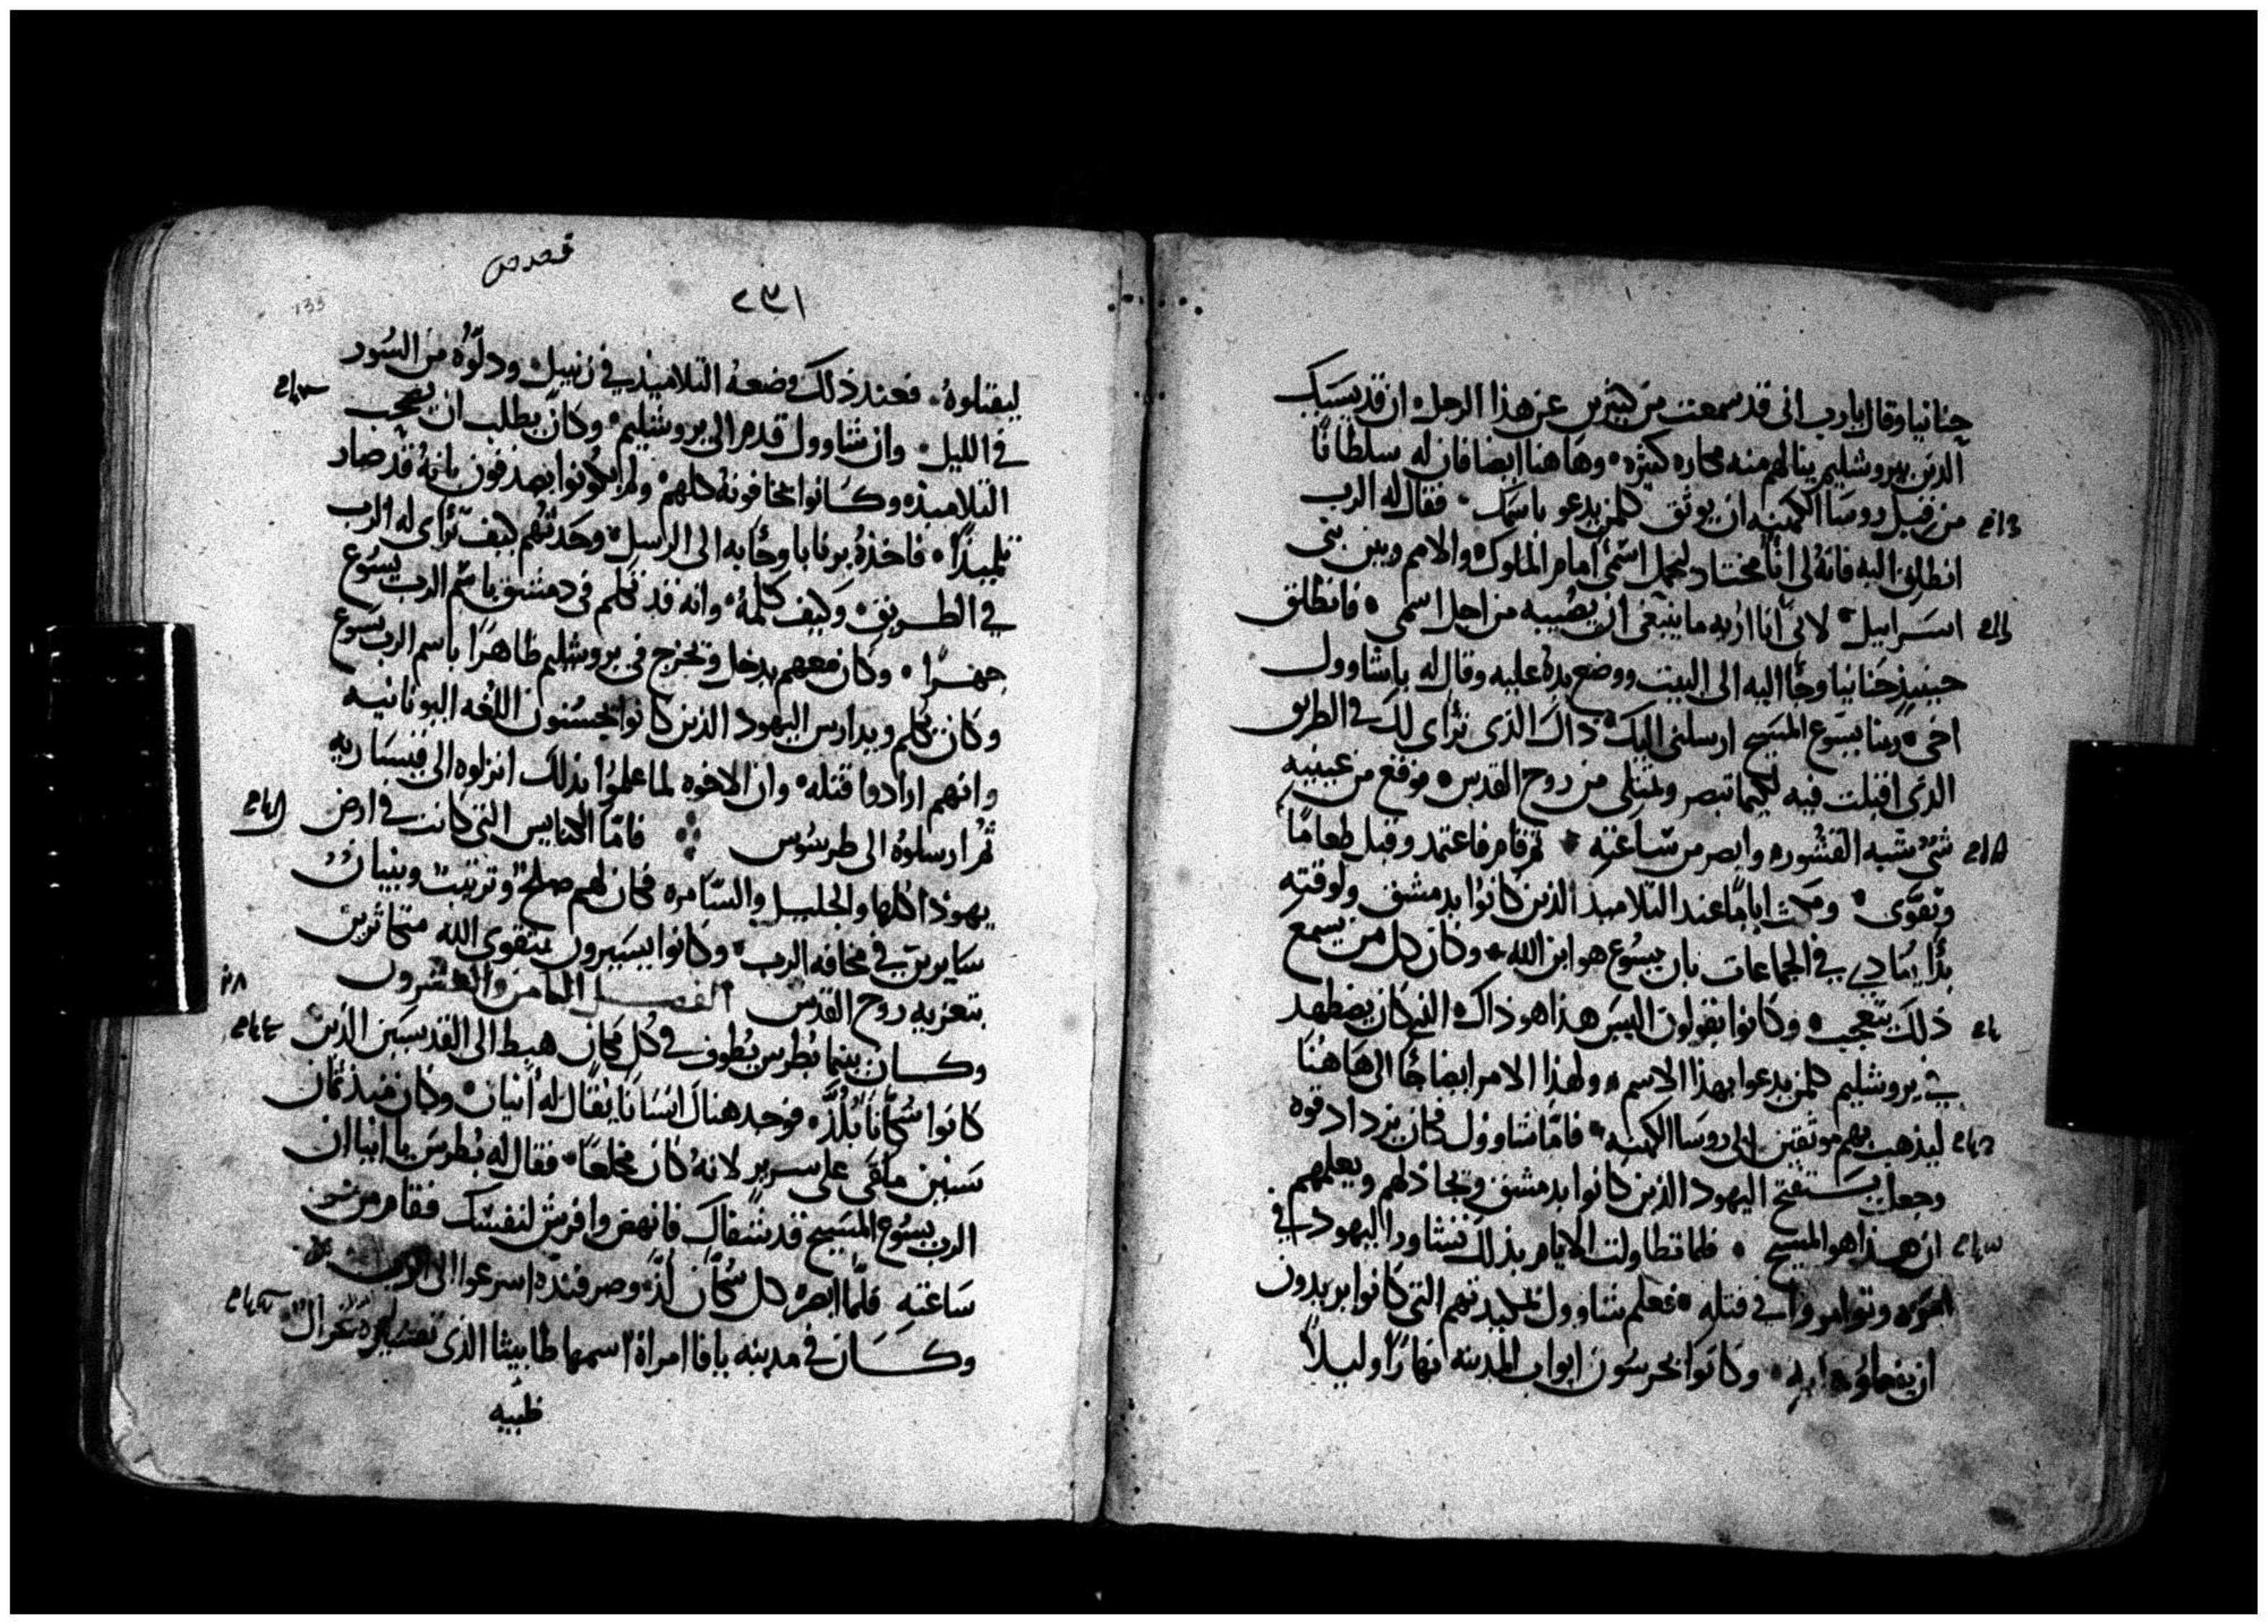 حنانيا وقال يا رب انى قد سمعت من كثيرين عن هذا الرجل ان قديسيك
الذين بيروشليم ينالهم منه مكاره كثيره وهاهنا ايضا فان له سلطانًا
من قبل روسا الكهنه ان يوثق كلمن يدعو باسمك فقال له الرب
انطلق اليه فانهُ لى انآ مختار ليحمل اسمى امام الملوك والامم وبين بنى
اسراييل لانى انا اريه ما ينبغى ان يصيبه من اجل اسمى فانطلق
حينيذ حنانيا وجا اليه الى البيت ووضع يدهُ عليه وقال له يا شاوول
اخى ربنا يسوع المسيح ارسلنى اليك ذاك الذى ترآى لك فى الطريق
الذى اقبلت فيه لكيما تبصر وتمتلى من روح القدس فوقع من عينيه
شى شبه القشور وابصر من ساعته ثم قام فاعتمد وقبل طعامًا
وتقوّى ومكث ايامًا عند التلاميذ الذين كانوا بدمشق ولوقته
بدا ينادى فى الجماعات بان يسوع هو ابن الله وكان كل من يسمع
ذلك يتعجب وكانوا يقولون اليس هذا هو ذاك الذى كان يضطهد
فى يروشليم كلمن يدعوا بهذا الاسم ولهذا الامر ايضا جا الى هاهنا
ليذهب بهم موثقين الى روسا الكهنه فامّا شاوول فكان يزداد قوه
وجعل يستفتح اليهود الذين كانوا بدمشق ويجادلهم ويعلمهم
ان هذا هو المسيح فلما تطاولت الايام بذلك تشاوروا اليهود فى
وتوامروا فى قتله فعلم شاوول بمكيدتهم التى كانوا يريدون
ان يفعلوها به وكانوا يحرسون ابواب المدينه نهارًا وليلاً
قصص
٢٣١
135
ليقتلوهُ فعند ذلك وضعهُ التلاميذ فى زنبيل ودلّوُه من السُور
فى الليل وان شاوول قدم الى يروشليم وكان يطلب ان يصحب
التلاميذ وكانوا يخافونه كلهم ولم يكونوا يصدقون بانهُ قد صار
تلميذًا فاخذهُ برنابا وجآ به الى الرسل وحدثهم كيف ترآى له الرب
فى الطريق وكيف كلمهُ وانه قد تكلم فى دمشق باسم الرب يسوع
جهرًا وكان معهم يدخل ويخرج فى يروشليم ظاهرًا باسم الرب يسوع
وكان يكلم ويدارس اليهود الذين كانوا يحسنون اللغه اليونانيه
وانهم ارادوا قتله وان الاخوه لما علموا بذلك انزلوه الى قيساريه
ثم ارسلوهُ الى طرسوس فامّا الكنايس التى كانت فى ارض
يهوذا كلها والجليل والسّامره فكان لهم صلح وترتيب وبنيان
سايرين فى مخافه الرب وكانوا يسيرون بتقوى الله متكاثرين
بتعزيه روح القدس الفصل الثامن والعشرون
وكان بينما بُطرس يُطوف فى كُل مكان هبط الى القديسين الذين
كانوا سُكّانًا بلُدّ فوجد هناك انسانا يُقال له انيان وكان منذ ثمان
سنين ملقى على سرير لانهُ كان مخلعًا فقال له بُطرس يا انيا ان
الرب يسوع المسيح قد شفاك فانهض وافرش لنفسك فقام من
ساعته فلمّا ابصره كل سُكّان لُدّ وصرفنده اسرعوا الى الرب
وكان فى مدينه يافا امراة اسمها طابيثا الذى تفسيره غزال
ظبيه